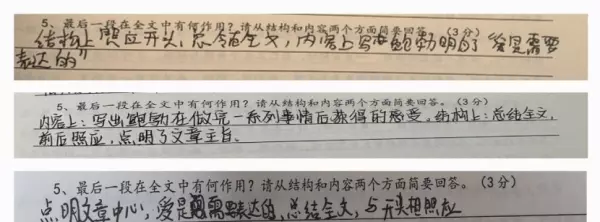 5、最后一段在全文中有何作用？请从结构和内容两个方面简要回答。（3分）
结构上照应开头，总领全文，内容上写出鲍勃明白了“爱是需要
表达的”
5、最后一段在全文中有何作用？请从结构和内容两个方面简要回答。（3分）
内容上：写出鲍勃在做完一系列事情后获得的感受，结构上：总结全文，
前后照应，点明了文章主旨。
5、最后一段在全文中有何作用？请从结构和内容两个方面简要回答。（3分）
点明文章中心，爱是需要表达的，总结全文，与开头相照应